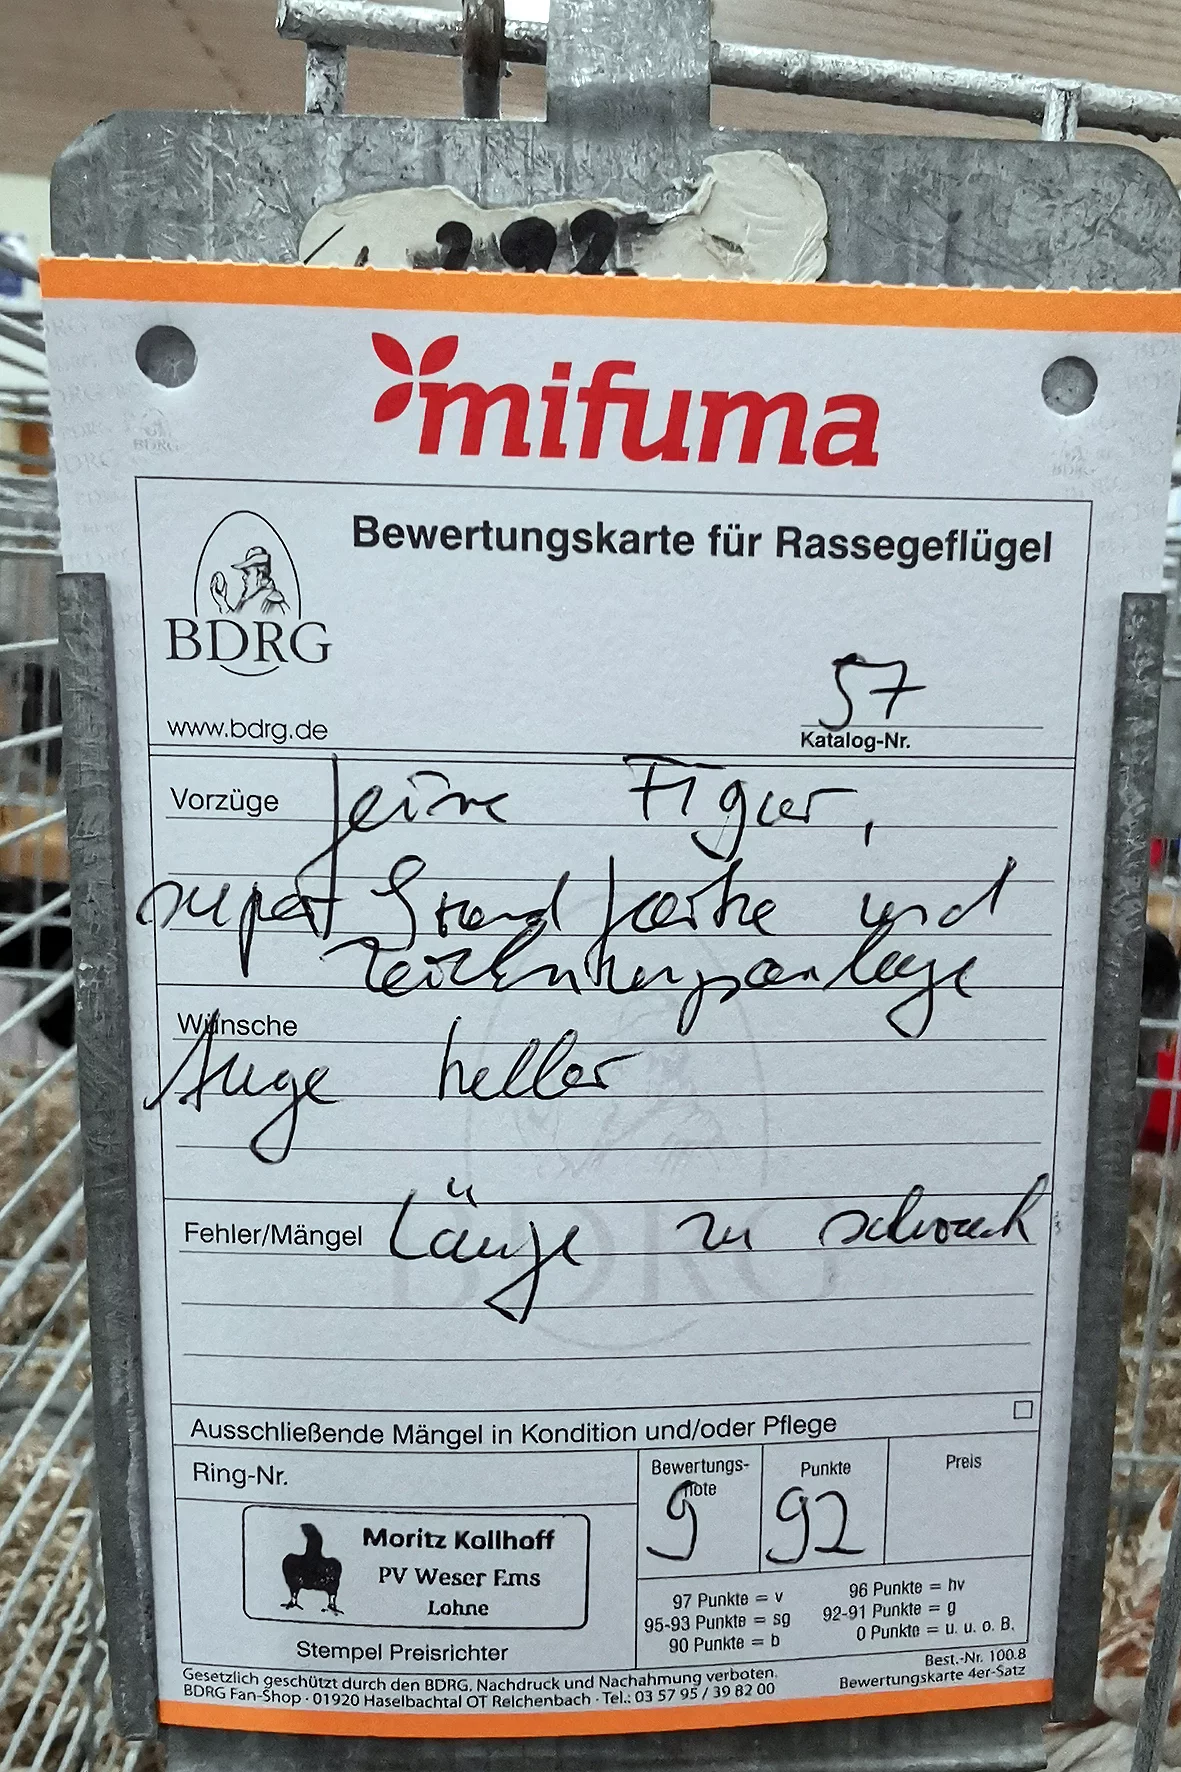 292
mifuma
Bewertungskarte für Rassegeflügel
BDRG
www.bdrg.de
57
Katalog-Nr.
Vorzüge feine Figur,
super Standfarbe und
Zeichnungsanlage
Wünsche
Auge heller
Fehler/Mängel Länge zu schwach
Ausschließende Mängel in Kondition und/oder Pflege
Ring-Nr.
Bewertungs-
note
Punkte
Preis
g
92
Moritz Kollhoff
PV Weser Ems
Lohne
Stempel Preisrichter
97 Punkte = v
96 Punkte = hv
95-93 Punkte = sg
92-91 Punkte = g
90 Punkte = b
0 Punkte = u. u. o. B.
Best.-Nr. 100.8
Bewertungskarte 4er-Satz
Gesetzlich geschützt durch den BDRG. Nachdruck und Nachahmung verboten.
BDRG Fan-Shop · 01920 Haselbachtal OT Reichenbach · Tel.: 03 57 95 / 39 82 00